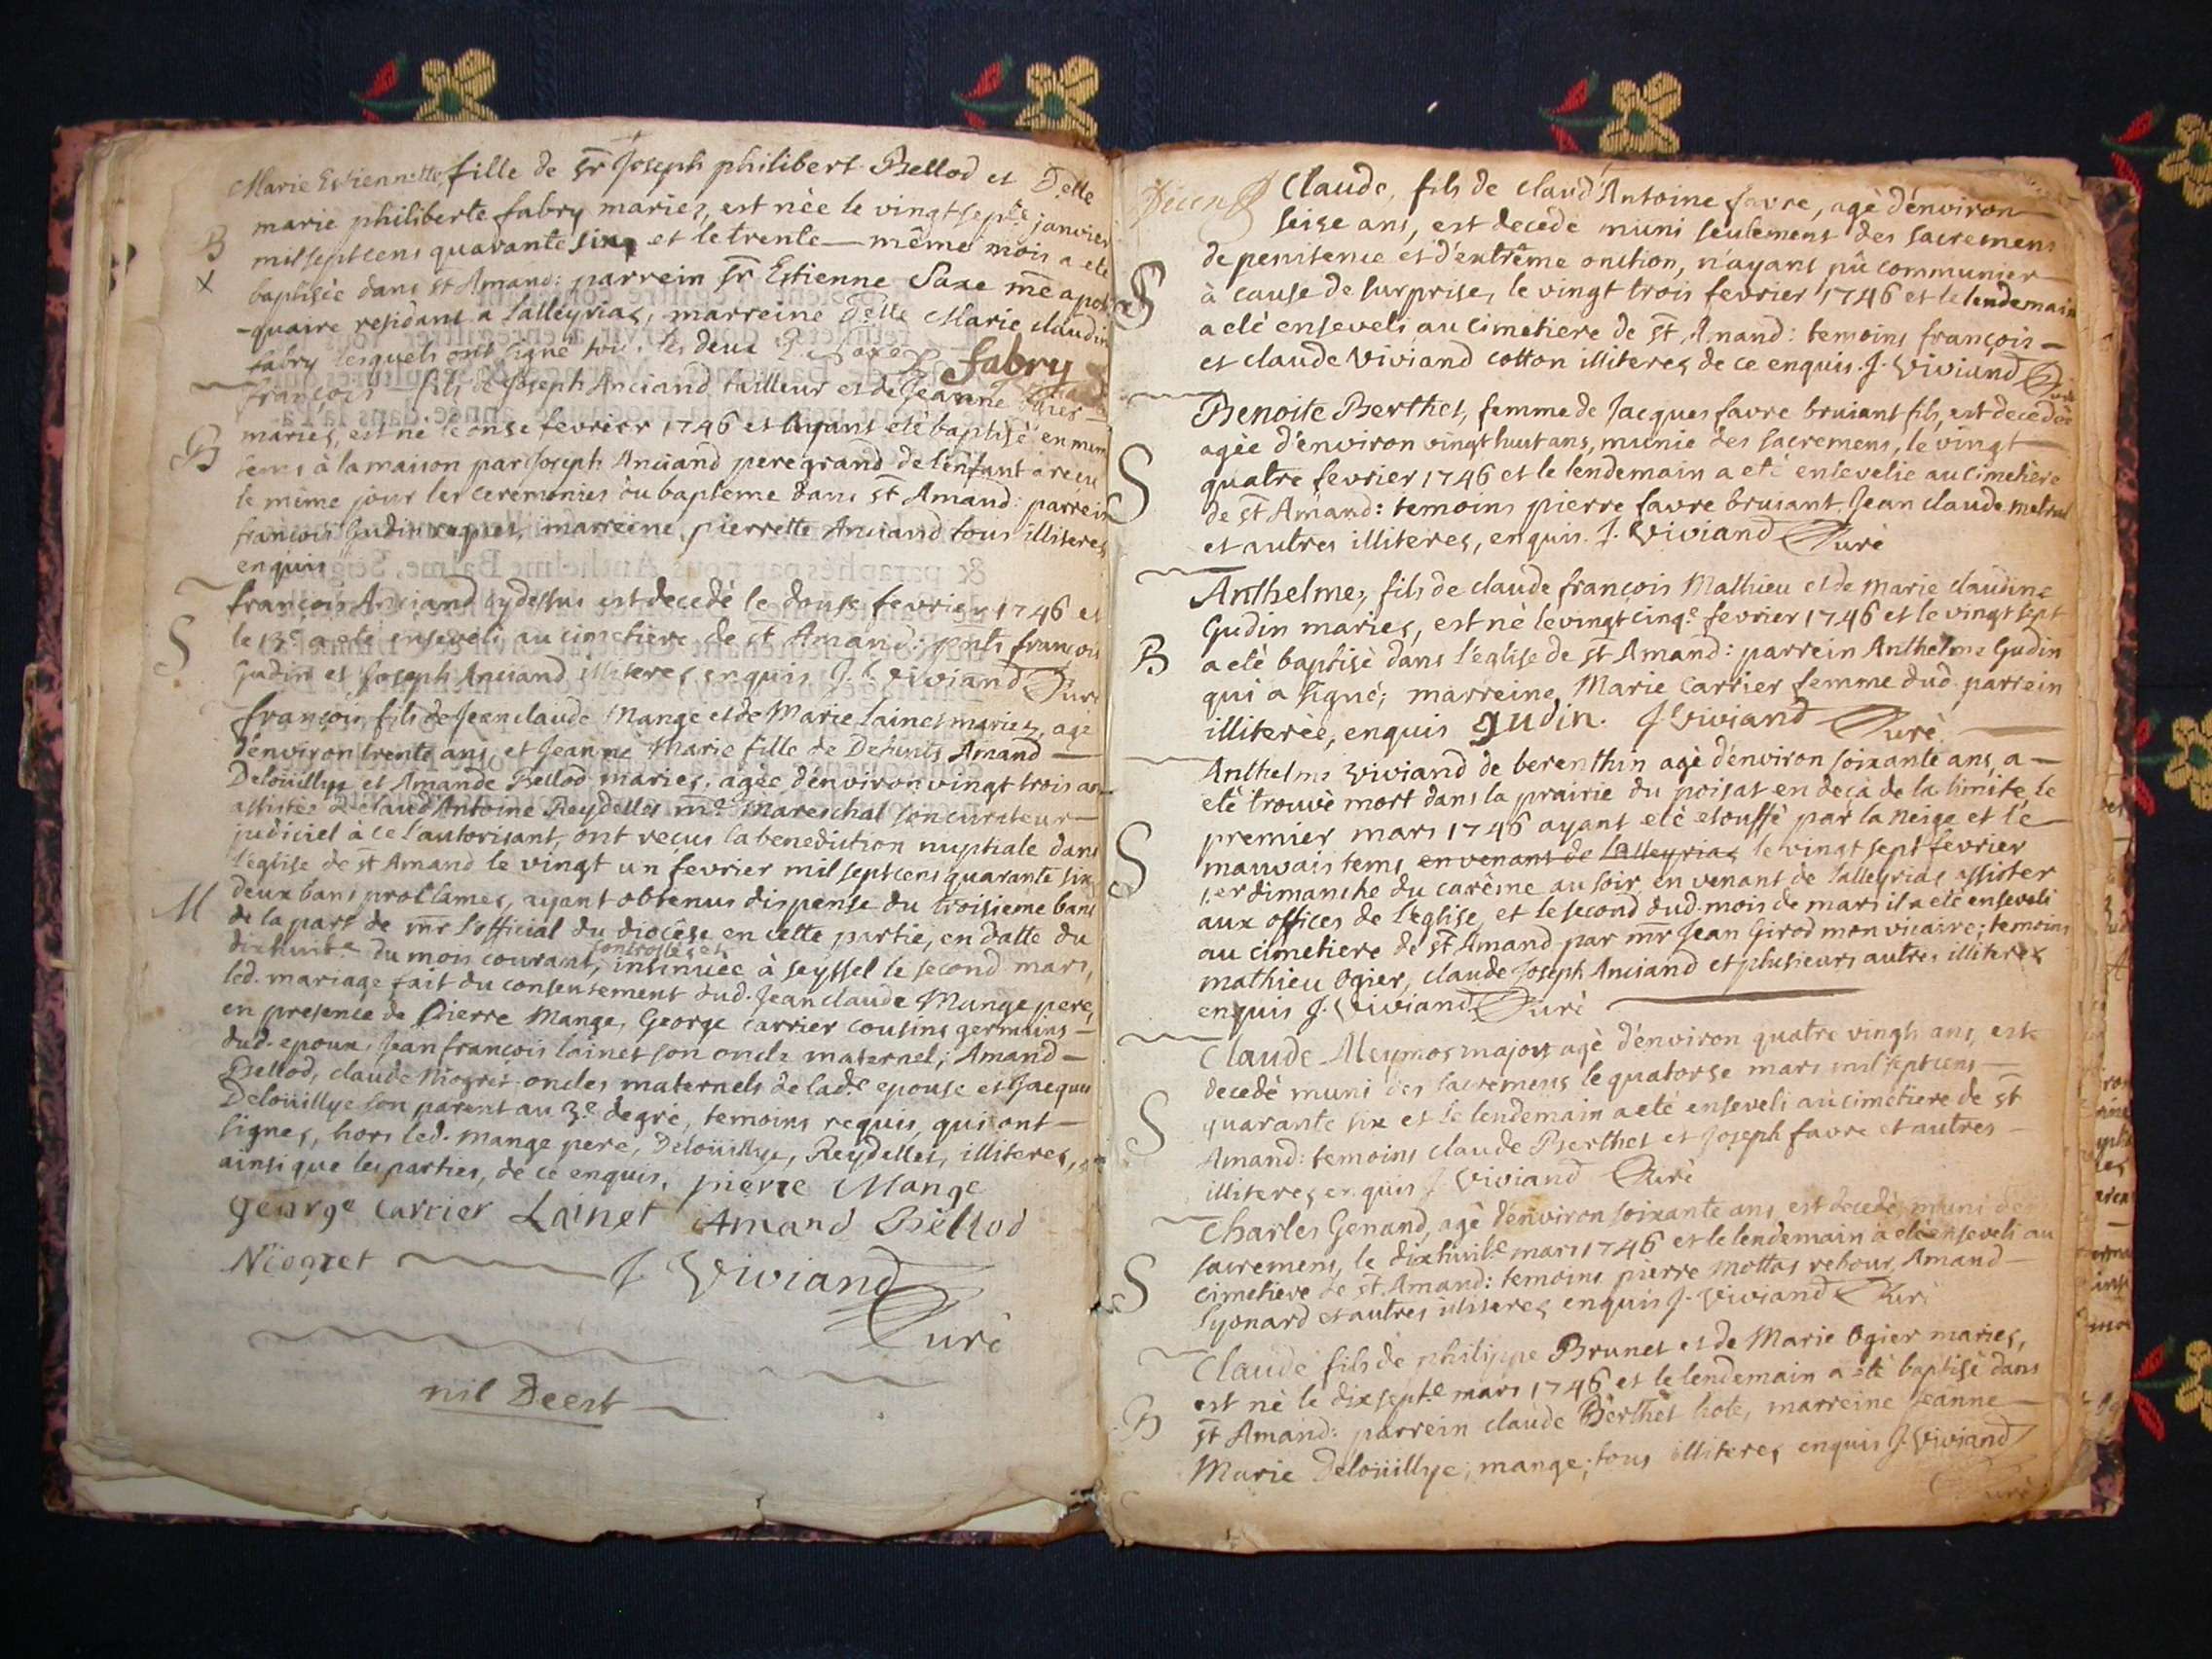 Marie Estiennette, fille de sr Joseph philibert Bellod et Delle
marie philiberte fabry mariez, est née le vingtsepte janvier
B milseptcens quarante six, et le trente — même mois a eté
X baptisée dans st Amand: parrein sr Estienne Saxe me apoti
-quaire residant a Lalleyriaz, marreine delle Marie claudin
fabry lesquels ont signé tous les deux E. Saxe fabry
françois — fils de Joseph Anciand tailleur et de Jeanne
B mariez, est né le onse fevrier 1746 et Ayant eté baptisé en mem
tems à la maison par Joseph Anciand pere grand de l'enfant a reçu
le même jour les ceremonies du bapteme dans st Amand: parrein
françois Gudin requet, marreine pierrette Anciand tous illiterez
enquis
françois Anciand cydessus est decedé le douse fevrier 1746 et
S le 13e a eté enseveli au cimetiere de st Amand: pnts françois
Gudin et Joseph Anciand illiterez enquis J. Viviand Curé
françois fils de Jean claude Mange et de Marie Lainet mariez, agé
d'environ trente ans, et Jeanne Marie fille de Defunts Amand —
Deloüillye et Amande Bellod mariez, agée d'environ vingt trois an
assistée de claud'Antoine Reydellet me mareschal son curateur —
judiciel à ce l'autorisant, ont reçus la benediction nuptiale dans
l'eglise de st Amand le vingt un fevrier mil septcens quarante six,
M deux bans proclamez, ayant obtenus dispense du troisieme bans
de la part de mr l'official du diocêse en cette partie, en datte du
dixhuite du mois courant, controllée et insinuée à seyssel le second mars,
led. mariage fait du consentement dud. Jean claude Mange pere,
en presence de Pierre Mange, George carrier cousins germains —
dud. epoux, Jean françois lainet son oncle maternel; Amand —
Bellod, claude Niogret oncles maternels de lade epouse et Jacques
Deloüillye son parent au 3e degré, temoins requis, qui ont —
signez, hors led. mange pere, Deloüillye, Reydellet, illiterez,
ainsi que les parties, de ce enquis. pierre Mange
George carrier Lainet Amand Bellod
Niogret J Viviand
Curé
nil Deest
Claude, fils de claud'Antoine favre, agé d'environ —
seise ans, est decedé muni seulement des sacremens
de penitence et d'extrême onction, n'ayant pû communier —
S à cause de surprise, le vingt trois fevrier 1746 et le lendemain
a eté enseveli au cimetiere de st Amand: temoins françois —
et claude Viviand cotton illiterez de ce enquis. J. Viviand Curé
Benoite Berthet, femme de Jacques favre bruiant fils, est decedée
agée d'environ vingt huit ans, munie des sacremens, le vingt —
S quatre fevrier 1746 et le lendemain a eté ensevelie au cimetiere
de st Amand: temoins pierre favre bruiant, Jean claude metral
et autres illiterez, enquis. J. Viviand Curé
Anthelme, fils de claude françois Mathieu et de marie claudine
Gudin mariez, est né le vingt cinqe fevrier 1746 et le vingt sept
B a eté baptisé dans l'église de st Amand: parrein Anthelme Gudin
qui a signé; marreine, Marie carrier femme dud. parrein
illiterée, enquis gudin. J. Viviand Curé
Anthelme Viviand de berenthin agé d'environ soixante ans, a —
eté trouvé mort dans la prairie du poisat en deçà de la limite, le
premier mars 1746 ayant eté etouffé par la neige et le —
S mauvais tems en venant de Lalleyriaz le vingt sept fevrier
1er dimanche du carême au soir en venant de Lalleyriaz assister
aux offices de l'église, et le second dud. mois de mars il a eté enseveli
au cimetiere de st Amand par mr Jean Girod mon vicaire; temoins
mathieu Ogier, claude Joseph Anciand et plusieurs autres illiterez
enquis J. Viviand Curé
Claude Meymoz major agé d'environ quatre vingts ans, est
decedé muni des sacremens le quatorse mars mil septcens —
S quarante six et le lendemain a eté enseveli au cimetiere de st
Amand: temoins claude Berthet et Joseph favre et autres —
illiterez enquis J. Viviand Curé
Charles Genand, agé d'environ soixante ans, est decedé muni des
sacremens, le dixhuite mars 1746 et le lendemain a eté enseveli au
S cimetiere de st Amand: temoins pierre mottas rebour, Amand —
Lyonard et autres illiterez enquis J. Viviand Curé
Claude fils de philippe Brunet et de Marie Ogier mariez,
est né le dixsepte mars 1746 et le lendemain a eté baptisé dans
B st Amand: parrein claude Berthet hote, marreine Jeanne —
Marie Deloüillye, mange; tous illiterez enquis J. Viviand
Curé